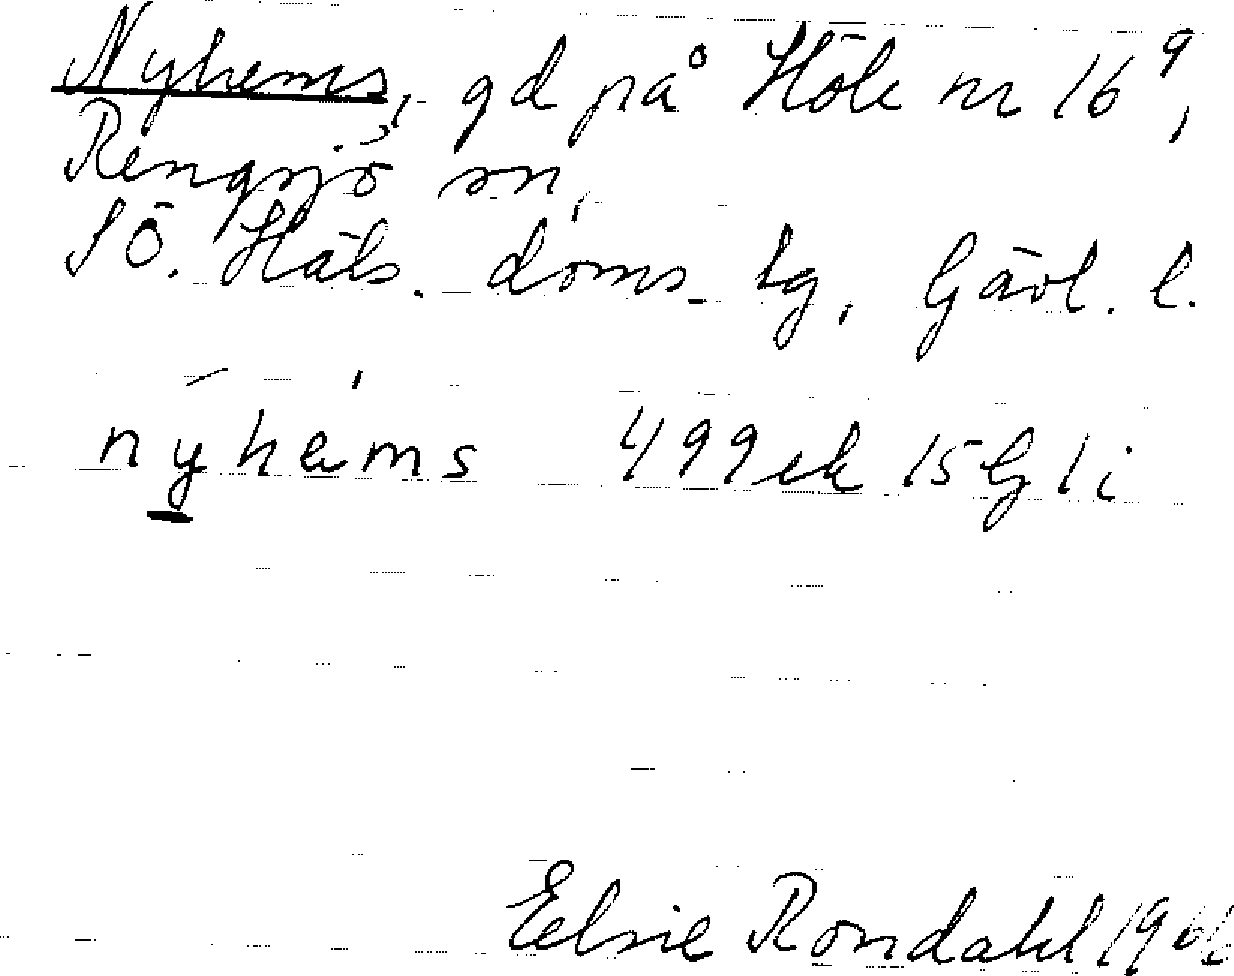 Nyhems, gd på Höle nr 16⁹,
Rengsjö sn,
SÖ. Häls. doms. lg, Gävl. l.
nyhems 499 ek 15 G 1 i
Elsie Rondahl 1966